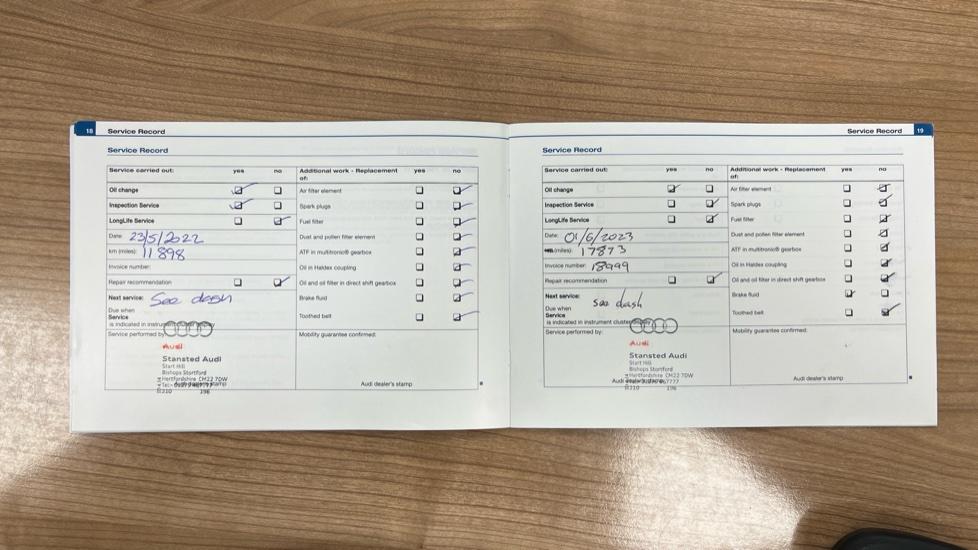 18 Service Record
Service Record
Service carried out: yes no
Oil change
Inspection Service
LongLife Service
Date: 23/5/2022
km (miles): 11 898
Invoice number:
Repair recommendation
Next service: See dash
Due when
Service
is indicated in instrument
Service performed by:
Audi
Stansted Audi
Start Hill
Bishops Stortford
Hertfordshire CM22 7DW
Additional work - Replacement of: yes no
Air filter element
Spark plugs
Fuel filter
Dust and pollen filter element
ATF in multitronic® gearbox
Oil in Haldex coupling
Oil and oil filter in direct shift gearbox
Brake fluid
Toothed belt
Mobility guarantee confirmed:
Audi dealer's stamp
Service Record 19
Service Record
Service carried out: yes no
Oil change
Inspection Service
LongLife Service
Date: 01/6/2023
(miles): 17873
Invoice number: 18999
Repair recommendation
Next service: See dash
Due when
Service
is indicated in instrument cluster
Service performed by:
Audi
Stansted Audi
Start Hill
Bishops Stortford
Hertfordshire CM22 7DW
Additional work - Replacement of: yes no
Air filter element
Spark plugs
Fuel filter
Dust and pollen filter element
ATF in multitronic® gearbox
Oil in Haldex coupling
Oil and oil filter in direct shift gearbox
Brake fluid
Toothed belt
Mobility guarantee confirmed:
Audi dealer's stamp